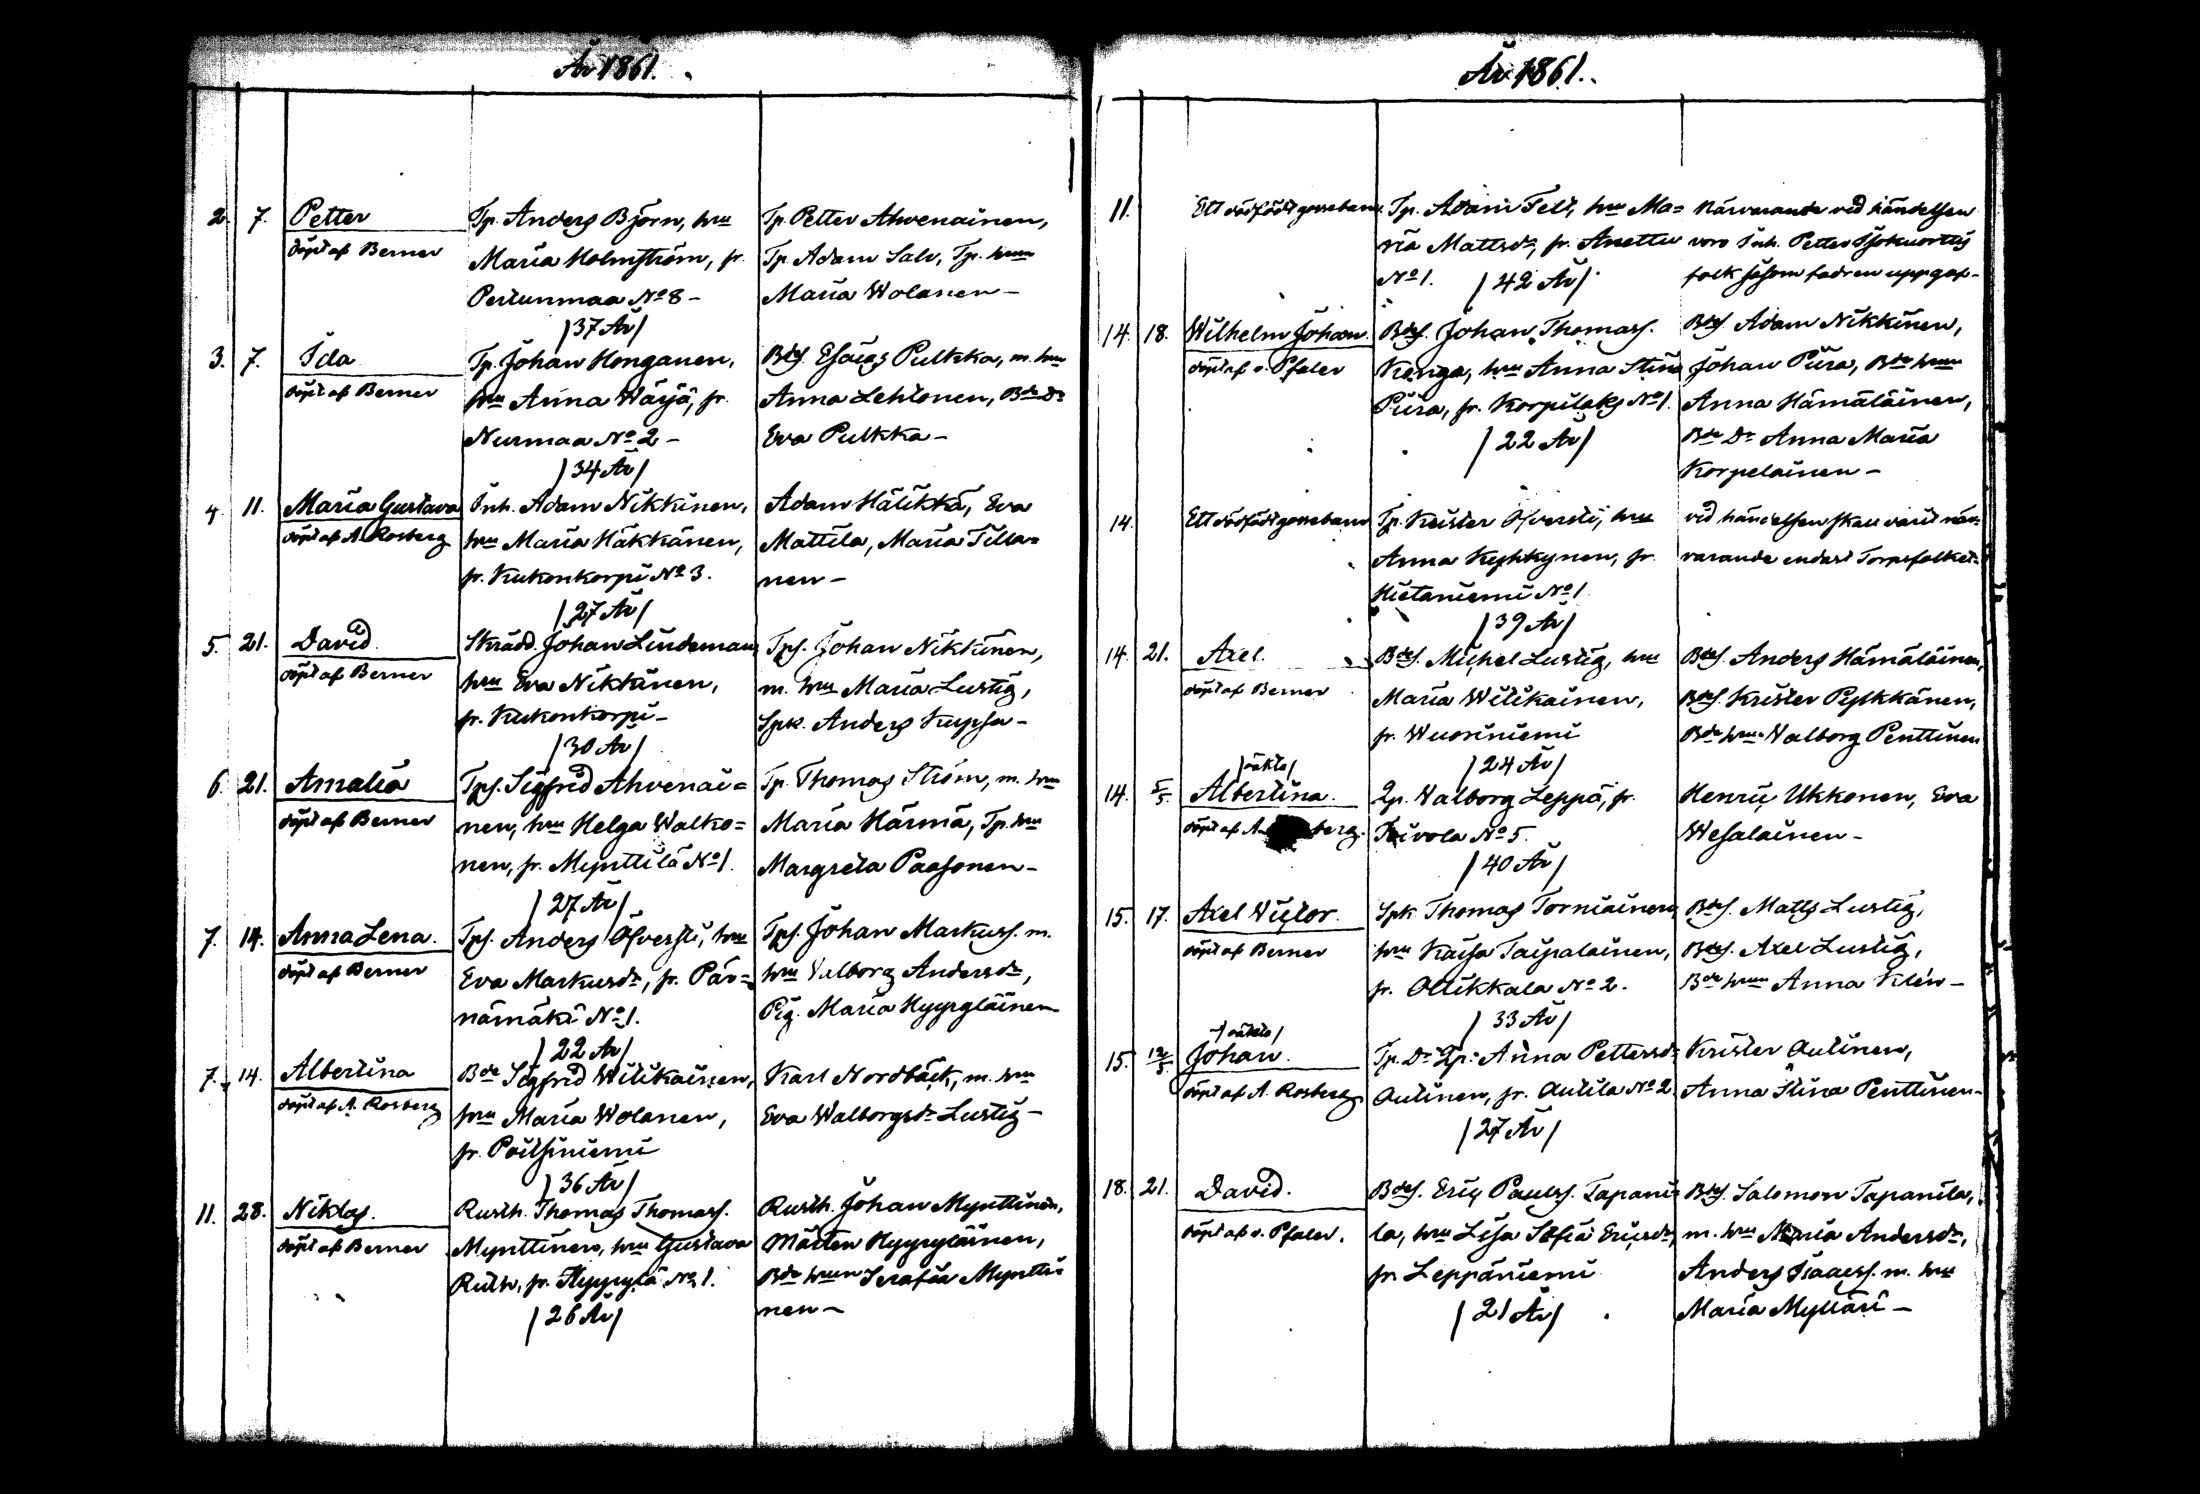 År 1861.
2. 7. Petter
döpt af Berner
Tp. Anders Björn, hru
Maria Holmström, fr.
Pertunmaa No 8 –
/37 År/
Tp. Petter Ahvenainen,
Tp. Adam Salv, Tp. hrun
Maria Wolanen –
3. 7. Ida
döpt af Berner
Tp. Johan Honganen,
hru Anna Wärjä, fr.
Nurmaa No 2 –
/34 År/
Bdes. Esaias Pulkka, m. hru
Anna Lehtonen, Bde Dr
Eva Pulkka –
4. 11. Maria Gustava
döpt af A. Rosberg
Inh. Adam Nikkinen,
hru Maria Häkkänen,
fr. Kukonkorpi No 3.
/27 År/
Adam Hälikkä, Eva
Mattila, Maria Tilla=
nen –
5. 21. David.
döpt af Berner
Skrädd. Johan Lindeman,
hru Eva Nikkinen,
fr. Kukonkorpi –
/30 År/
Tps. Johan Nikkinen,
m. hru Maria Lustig,
Spk. Anders –
6. 21. Amalia
döpt af Berner
Tps. Sigfrid Ahvenai=
nen, hru Helga Walko=
nen, fr. Mynttilä No 1.
/27 År/
Tp. Thomas Ström, m. hru
Maria Härmä, Tp. hru
Margreta Paasonen –
7. 14. Anna Lena.
döpt af Berner
Tps. Anders Öfversti, hru
Eva Markusdr, fr. Pär=
nämäki No 1.
/22 År/
Tps. Johan Markuss. m.
hru Valborg Andersdr,
Pig. Maria Hyyryläinen
7. 14. Albertina
döpt af A. Rosberg
Bde Sigfrid Wilikainen,
hru Maria Wolanen,
fr. Poitsiniemi
/36 År/
Karl Nordbäck, m. hru
Eva Walborgsdr Lustig –
11. 28. Niklas.
döpt af Berner
Rusth. Thomas Thomass.
Mynttinen, hru Gustava
Ruth, fr. Hyyrylä No 1.
/26 År/
Rusth. Johan Mynttinen,
Mårten Hyyryläinen,
Bde hrun Serafia Myntti=
nen –
År 1861.
11. Ett dödfödt gossebarn.
Tp. Adam Telt, hru Ma=
ria Mattsdr, fr. Anettu
No 1. /42 År/
Närvarande vid händelsen
voro Inh. Petter
folk såsom fadren uppgaf –
14. 18. Wilhelm Johan.
döpt af v. Pfaler
Bdes. Johan Thomass.
Konga, hru Anna Stina
Piira, fr. Korpilaks No 1.
/22 År/
Bdes. Adam Nikkinen,
Johan Piira, Bde hrun
Anna Hämäläinen,
Bde Dr Anna Maria
Korpelainen –
14. Ett dödfödt gossebarn
Tp. Krister Öfversti, hru
Anna Kyhkynen, fr.
Hietaniemi No 1
/39 År/
vid händelsen skall varit när=
varande endast Torpsfolket.
14. 21. Axel.
döpt af Berner
Bdes. Michel Lustig, hru
Maria Wilikainen,
fr. Wuoriniemi
/24 År/
Bdes. Anders Hämäläinen,
Bdes. Krister Pylkkänen,
Bde hrun Valborg Penttinen
/oäkta/
14. 5/5. Albertina.
döpt af A. berg.
Qp. Walborg Leppä, fr.
Toivola No 5.
/40 År/
Henric Ukkonen, Eva
Wesalainen –
15. 17. Axel Wictor.
döpt af Berner
Spk Thomas Torniainen,
hru Kaisa Taipalainen,
fr. Ollikkala No 2.
/33 År/
Bdes. Matts Lustig,
Bdes. Axel Lustig,
Bde hrun Anna Klén –
/oäkta/
15. 12/5 Johan.
döpt af A. Rosberg
Tp. Dr Qp. Anna Pettersdr
Autinen, fr. Autila No 2
/27 År/
Krister Autinen,
Anna Stina Penttinen –
18. 21. David.
döpt af v. Pfaler.
Bdes. Eric Paulss. Tapani=
la, hru Lisa Sofia Ericsdr,
fr. Leppäniemi
/21 År/
Bdes. Salomon Tapanila,
m. hru Maria Andersdr,
Anders Isaacss. m. hru
Maria Mylläri –